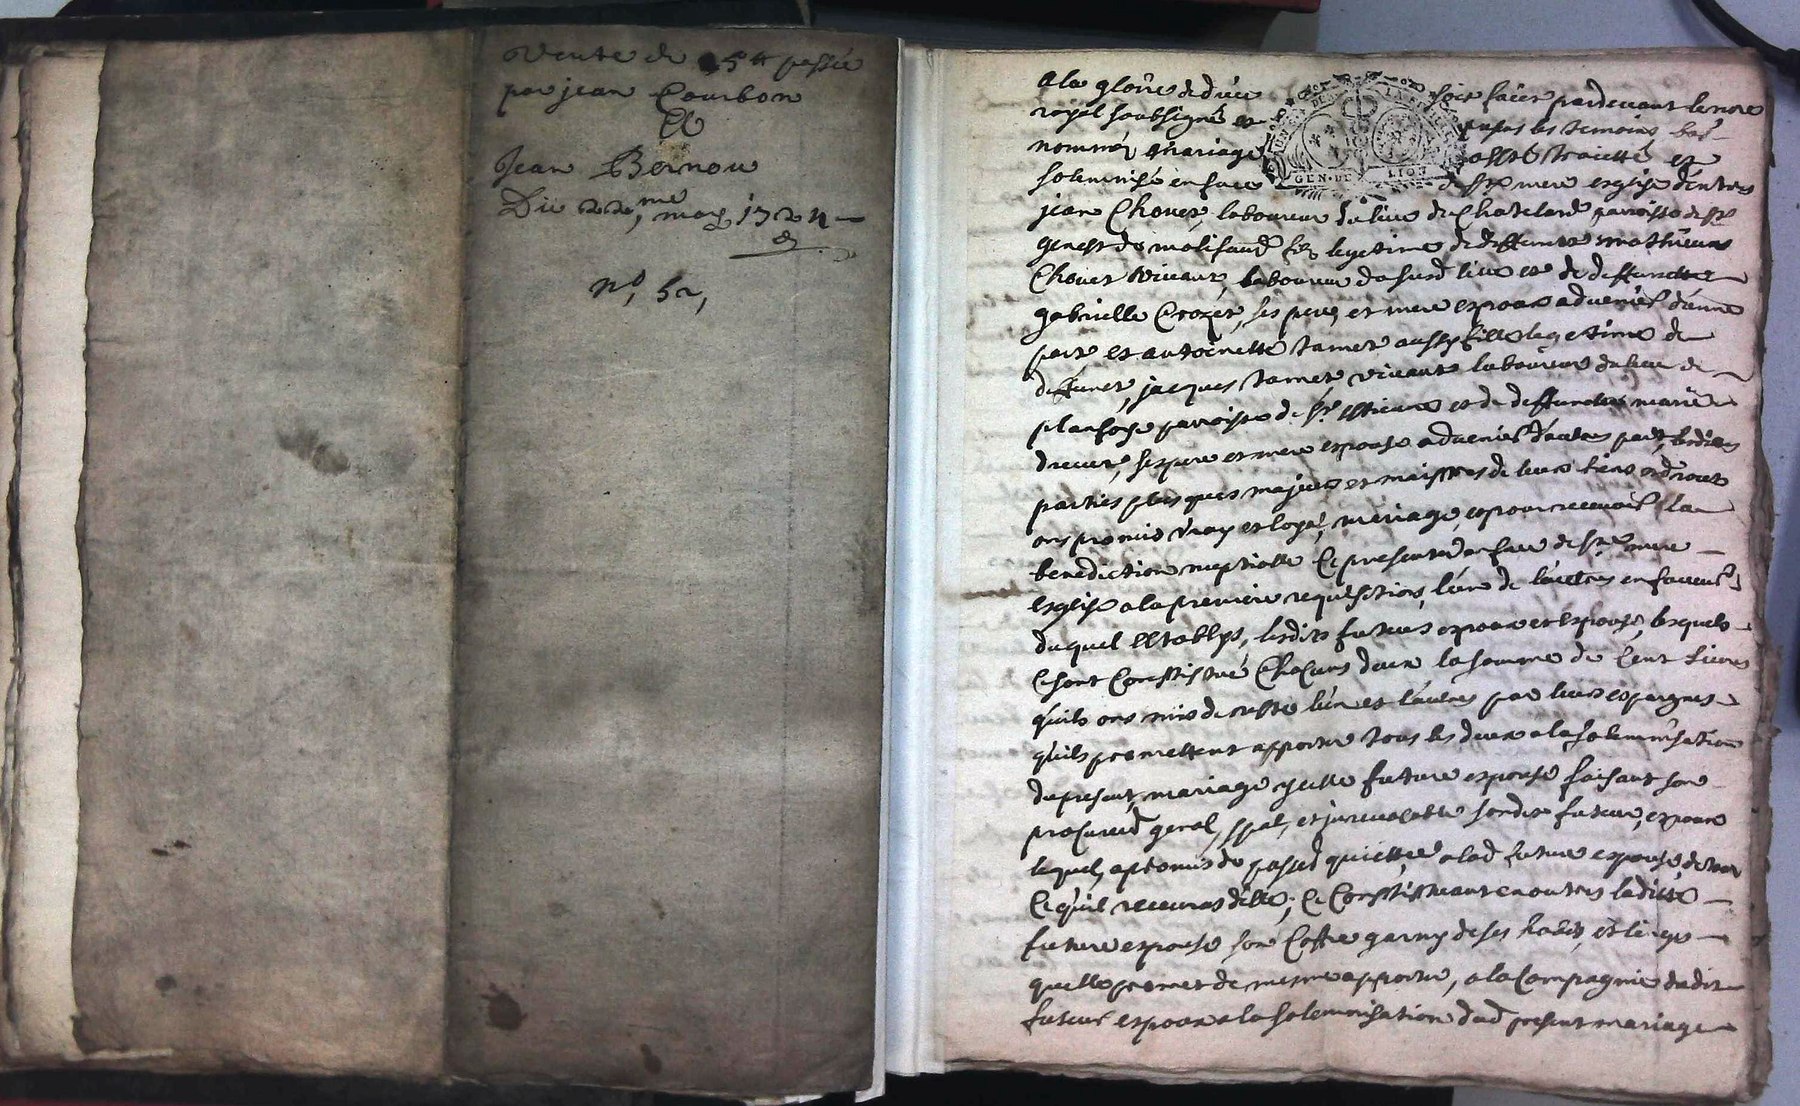 Vente de 15tt passée
par jean Courbon
Et
Jean Bernou
Du 22me may 1724
no, 52,
A la gloire de dieu soit faict pardevant le nore
royal soubsigné et presans les temoins bas
nommés mariage a esté traietté et
solemnisé en face de ste mere esglise d'entre
jean Chovet, laboureur du lieu de Chatelard parroisse de st
genest de malifaud fils legetime de deffunct mathieu
Chovet vivant, laboureur dasusd lieu et de deffuncte
gabrielle Crozet, ses pere et mere espoux advenir d'une
part et antoinette tamet aussy fille legetime de
deffunct jacques tamet vivant laboureur du lieu de
planfoy parroisse de st et de deffuncte marie
ses pere et mere espouse advenir d'autre part, lesdites
parties plus que majeurs et maistres de leurs biens et droits
ont promis vray et loyal mariage, et pour recevoir la
benediction nuptialle ce presenter en face de ste mere
esglise a la premiere requisition, l'un de l'autre en faveur
duquel establys, lesdits futeurs espoux et espouse, lesquels
ce sont Constistué Chacuns deux la somme de Cent livres
qu'ils ont mis de reste l'un et l'autre par leurs espargnes
qu'ils promettent apporter tous les deux a la solemnisation
du present mariage icelle future espouse faisant son
procureur general, spal, et jrrevocable sondit futeur, espoux
lequel, a promis de passer quiettée a lad future espouse de tout
Ce qu'il recevras d'elle, Ce Constistuant en outre laditte
future espouse son Coffre garny de ses habits, et linge
quelle promet de mesme apporter, a la Compagnie dudit
futeur espoux a la solemnisation dud present mariage